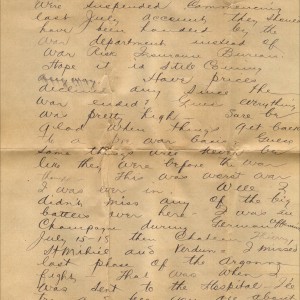 were suspended commencing
last July account, they should
have been handled by the
War department instead of
War Risk Insurance Bureau.
Hope it is still coming
anyway. Have prices
declined any since the
War ended? Guess everything
was pretty high. Sure be
glad when things get back
to a pre war basis. Guess
some things will never be
like they were before the War
This was worst war
I was ever in. Well I
didn't miss any of the big
battles over here. I was in
Champagne during German
July 15-18 then Chateau Thierry
St Mihiel and Verdun. I missed
last phase of the Argonne
fight. That was when I
was sent to the Hospital. I'd